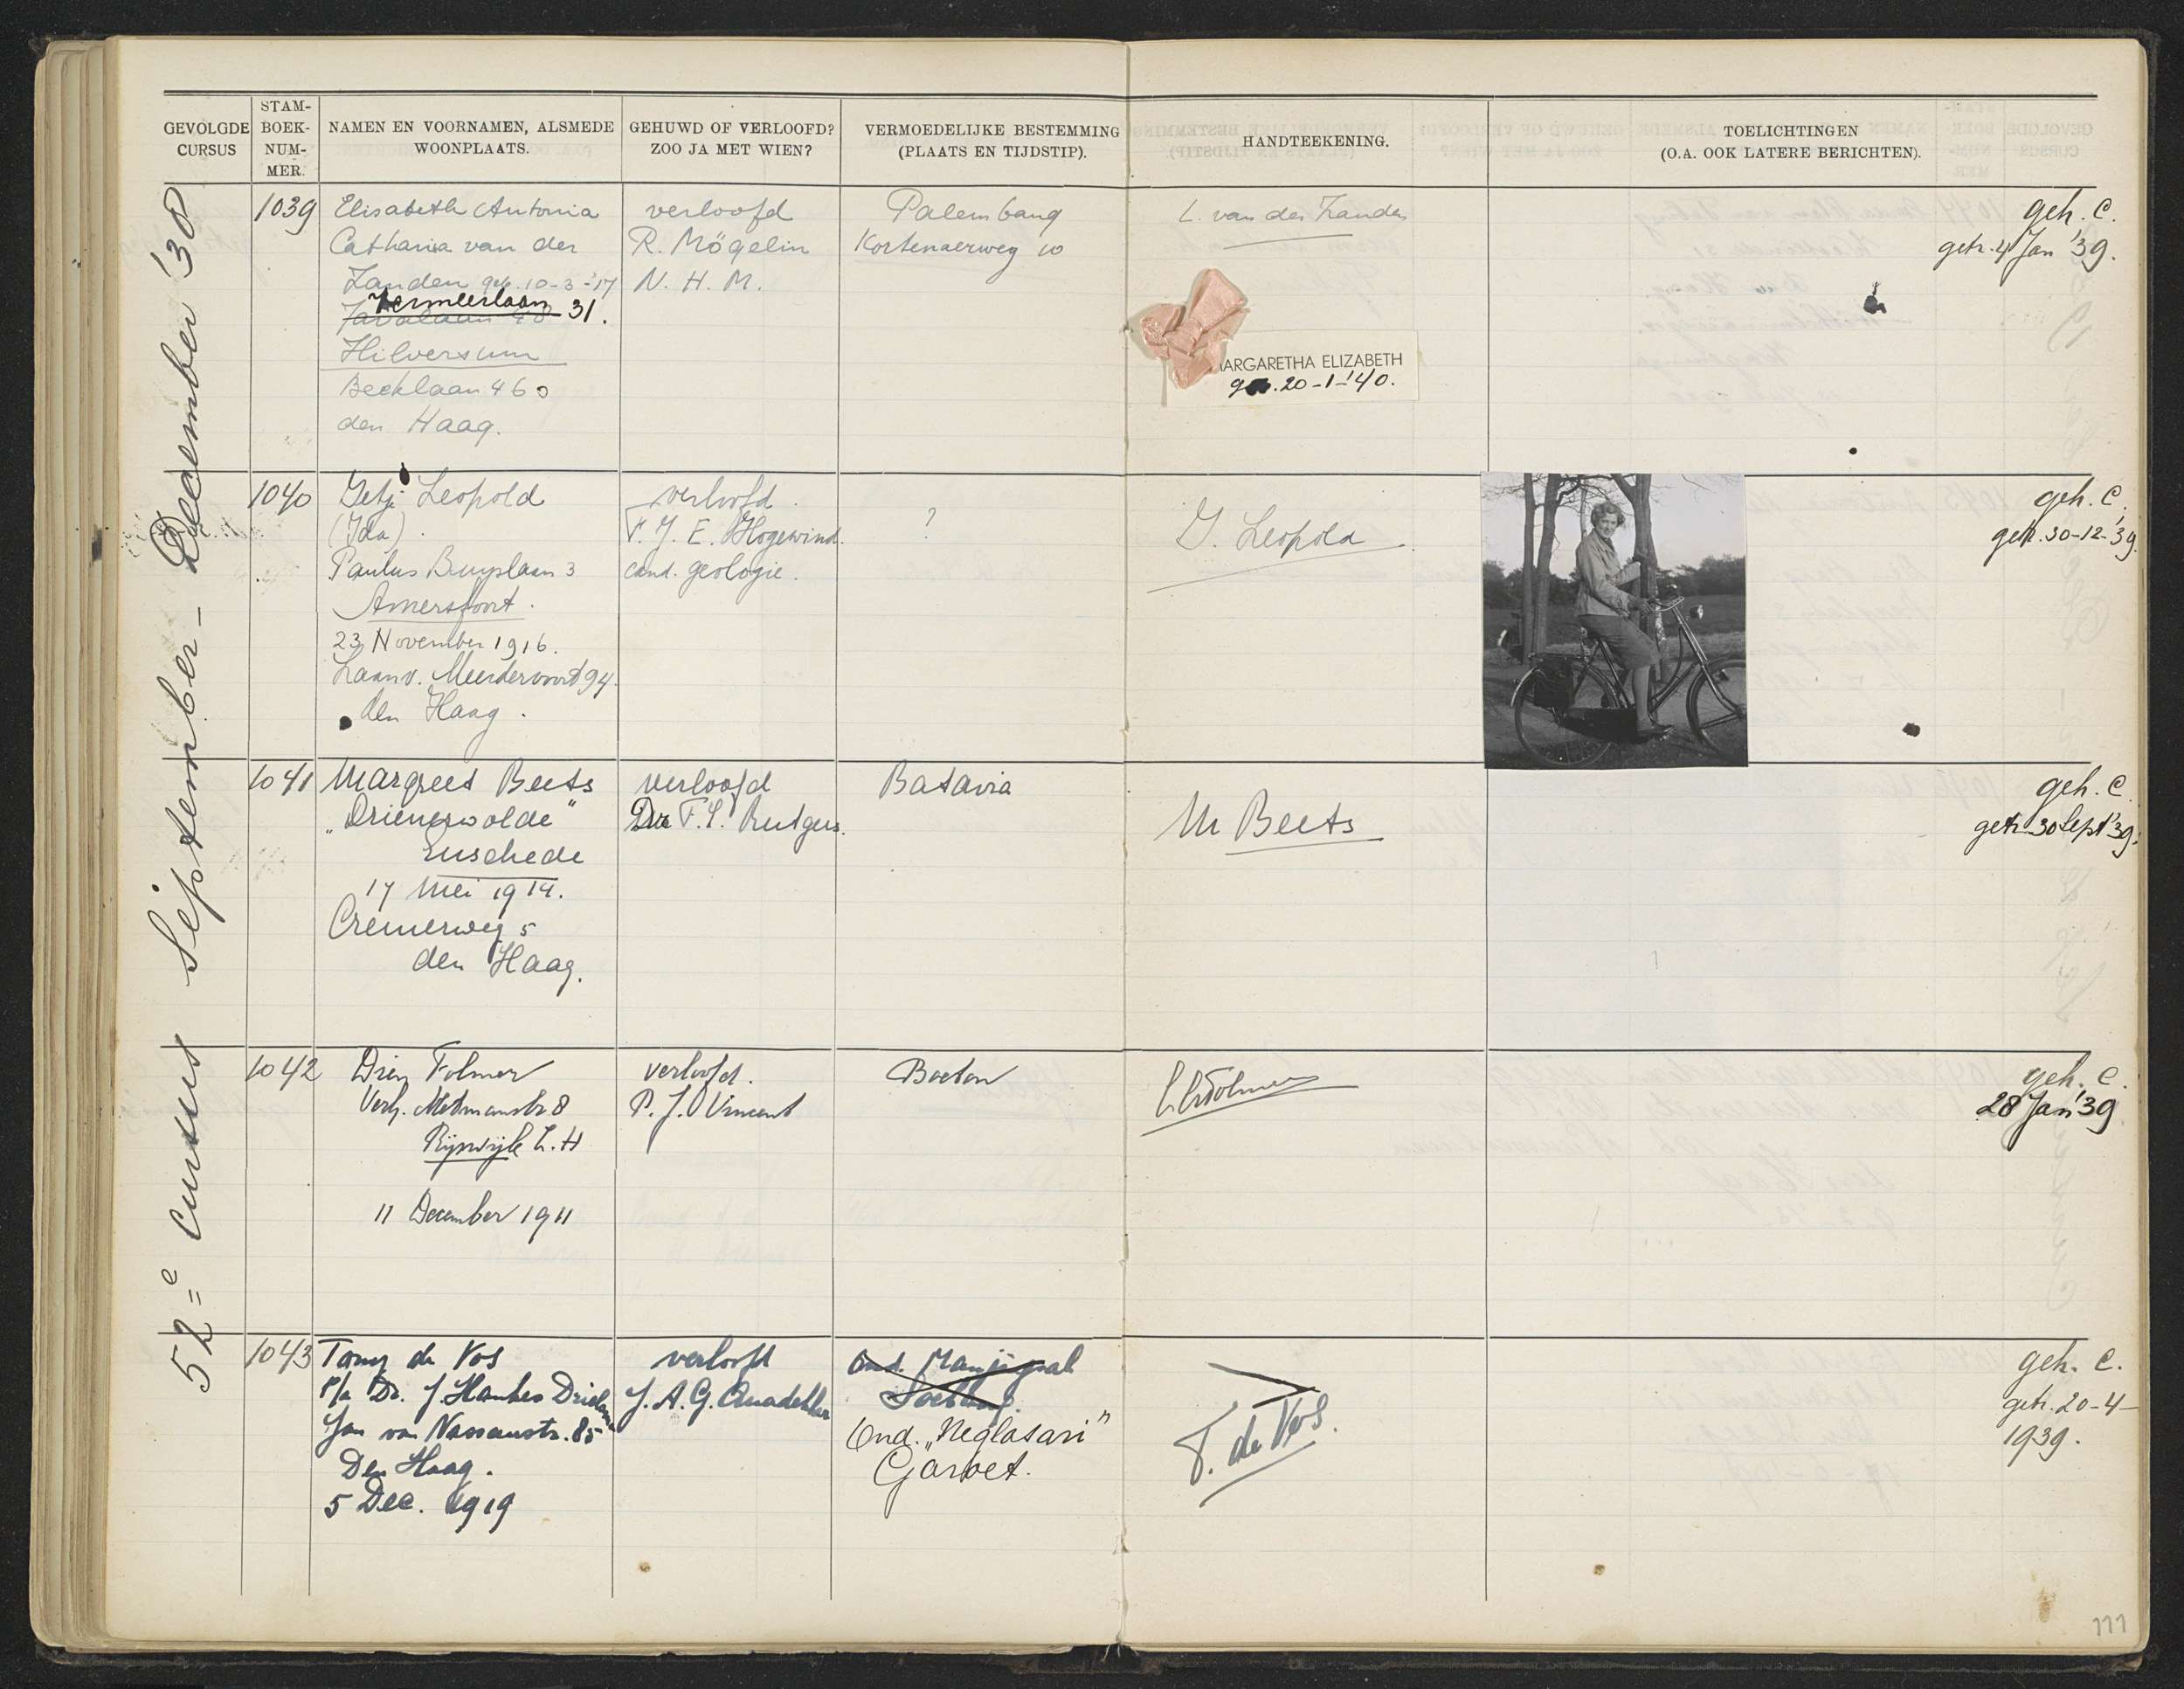 GEVOLGDE CURSUS
STAM-BOEK-NUM-MER.
NAMEN EN VOORNAMEN, ALSMEDE WOONPLAATS.
GEHUWD OF VERLOOFD? ZOO JA MET WIEN?
VERMOEDELIJKE BESTEMMING (PLAATS EN TIJDSTIP).
HANDTEEKENING.
TOELICHTINGEN (O.A. OOK LATERE BERICHTEN).
52=e cursus September - December '38
1039
Elisabeth Antonia
Catharia van der
Zanden geb. 10-3-'17
Vermeerlaan 31.
Javalaan 48
Hilversum
Becklaan 460
den Haag.
verloofd
R. Mögelin
N. H. M.
Palembang
Kortenaerweg 10
L. van der Zanden
ARGARETHA ELIZABETH
geb. 20-1-'40.
geh. C.
getr. 4 Jan '39.
1040
Jetj Leopold
(Ida).
Paulus Buyslaan 3
Amersfoort.
23 November 1916.
Laan v. Meerdervoort 94.
den Haag.
verloofd.
F. J. E. Hogewind.
cand. geologie.
?
J. Leopold
geh. C.
getr. 30-12-'39.
1041
Margreet Beets
"Drienerwolde"
Enschede
17 Mei 1914.
Cremerweg 5
den Haag.
verloofd
F. L. Rutgers.
Batavia
M Beets
geh. C.
getr. 30 Sept '39.
1042
Dien Folmer
Verl. Metmanstr. 8
Rijswijk Z.H
11 December 1911
verloofd.
P. J. Vincent
Boeton
geh. C.
28 Jan '39
1043
Tony de Vos
p/a Dr. J. Hankes Drielsma
Jan van Nassaustr. 85
Den Haag.
5 Dec. 1919
verloofd
J. A. G. Quadekker
Ond.
Soebang.
Ond. "Neglasari"
Garoet.
T. de Vos.
geh. C.
getr. 20-4-
1939.
111